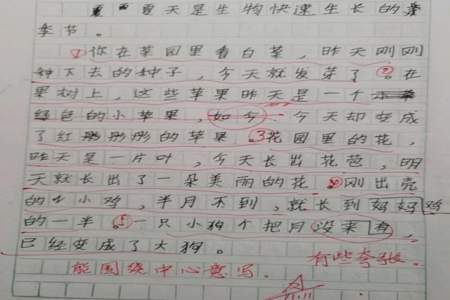 夏天是生物快速生长的
季节。
①你在菜园里看白菜，昨天刚刚
种下去的种子，今天就发芽了②在
果树上，这些苹果昨天是一个
绿色的小苹果，如今今天却变成
了红彤彤的苹果③花园里的花，
昨天是一片叶，今天长出花苞，明
天就长出了一朵美丽的花④刚出壳
的小鸡，半月不到，就长到妈妈鸡
的一半⑤一只小狗个把月没来看，
已经变成了大狗。
有些夸张。
能围绕中心意写。